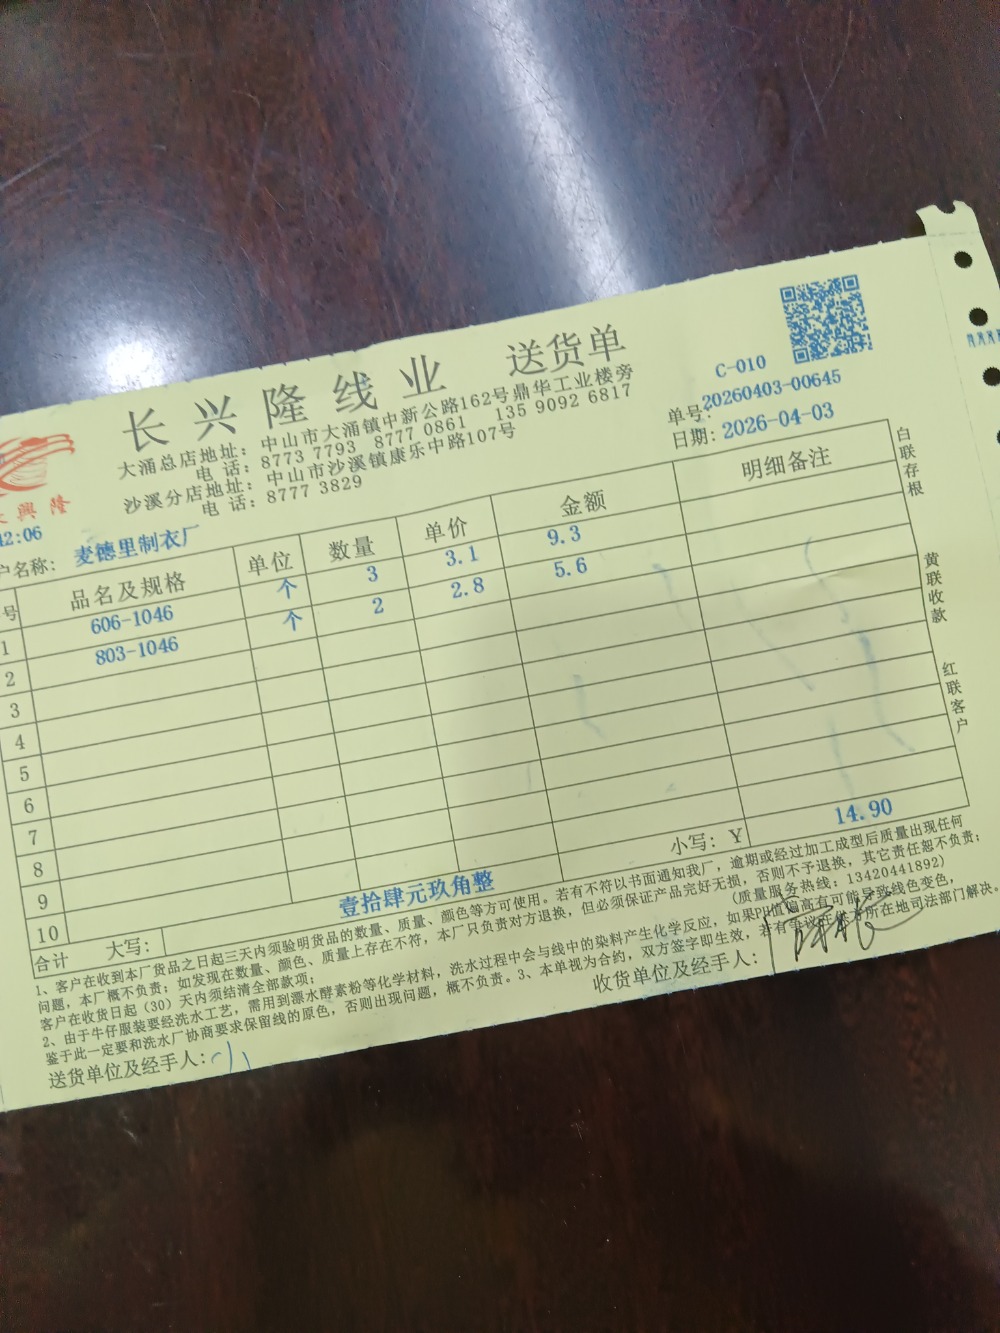 长兴隆线业 送货单
大涌总店地址: 中山市大涌镇中新公路162号鼎华工业楼旁
电 话: 8773 7793 8777 0861 135 9092 6817
沙溪分店地址: 中山市沙溪镇康乐中路107号
电 话: 8777 3829
C-010
单号: 20260403-00645
日期: 2026-04-03
興隆
42:06
户名称: 麦德里制衣厂
号 品名及规格 单位 数量 单价 金额 明细备注
1 606-1046 个 3 3.1 9.3
2 803-1046 个 2 2.8 5.6
3
4
5
6
7
8
9
10
合计 大写: 壹拾肆元玖角整 小写: Y 14.90
1、客户在收到本厂货品之日起三天内须验明货品的数量、质量、颜色等方可使用。若有不符以书面通知我厂,逾期或经过加工成型后质量出现任何
问题,本厂概不负责;如发现在数量、颜色、质量上存在不符,本厂只负责对方退换,但必须保证产品完好无损,否则不予退换,其它责任恕不负责;
客户在收货日起(30)天内须结清全部款项; (质量服务热线: 13420441892)
2、由于牛仔服装要经洗水工艺,需用到漂水酵素粉等化学材料,洗水过程中会与线中的染料产生化学反应,如果PH值偏高有可能导致线色变色,
鉴于此一定要和洗水厂协商要求保留线的原色,否则出现问题,概不负责。3、本单视为合约,双方签字即生效,若有争议在供方所在地司法部门解决。
送货单位及经手人: 收货单位及经手人:
白联存根
黄联收款
红联客户